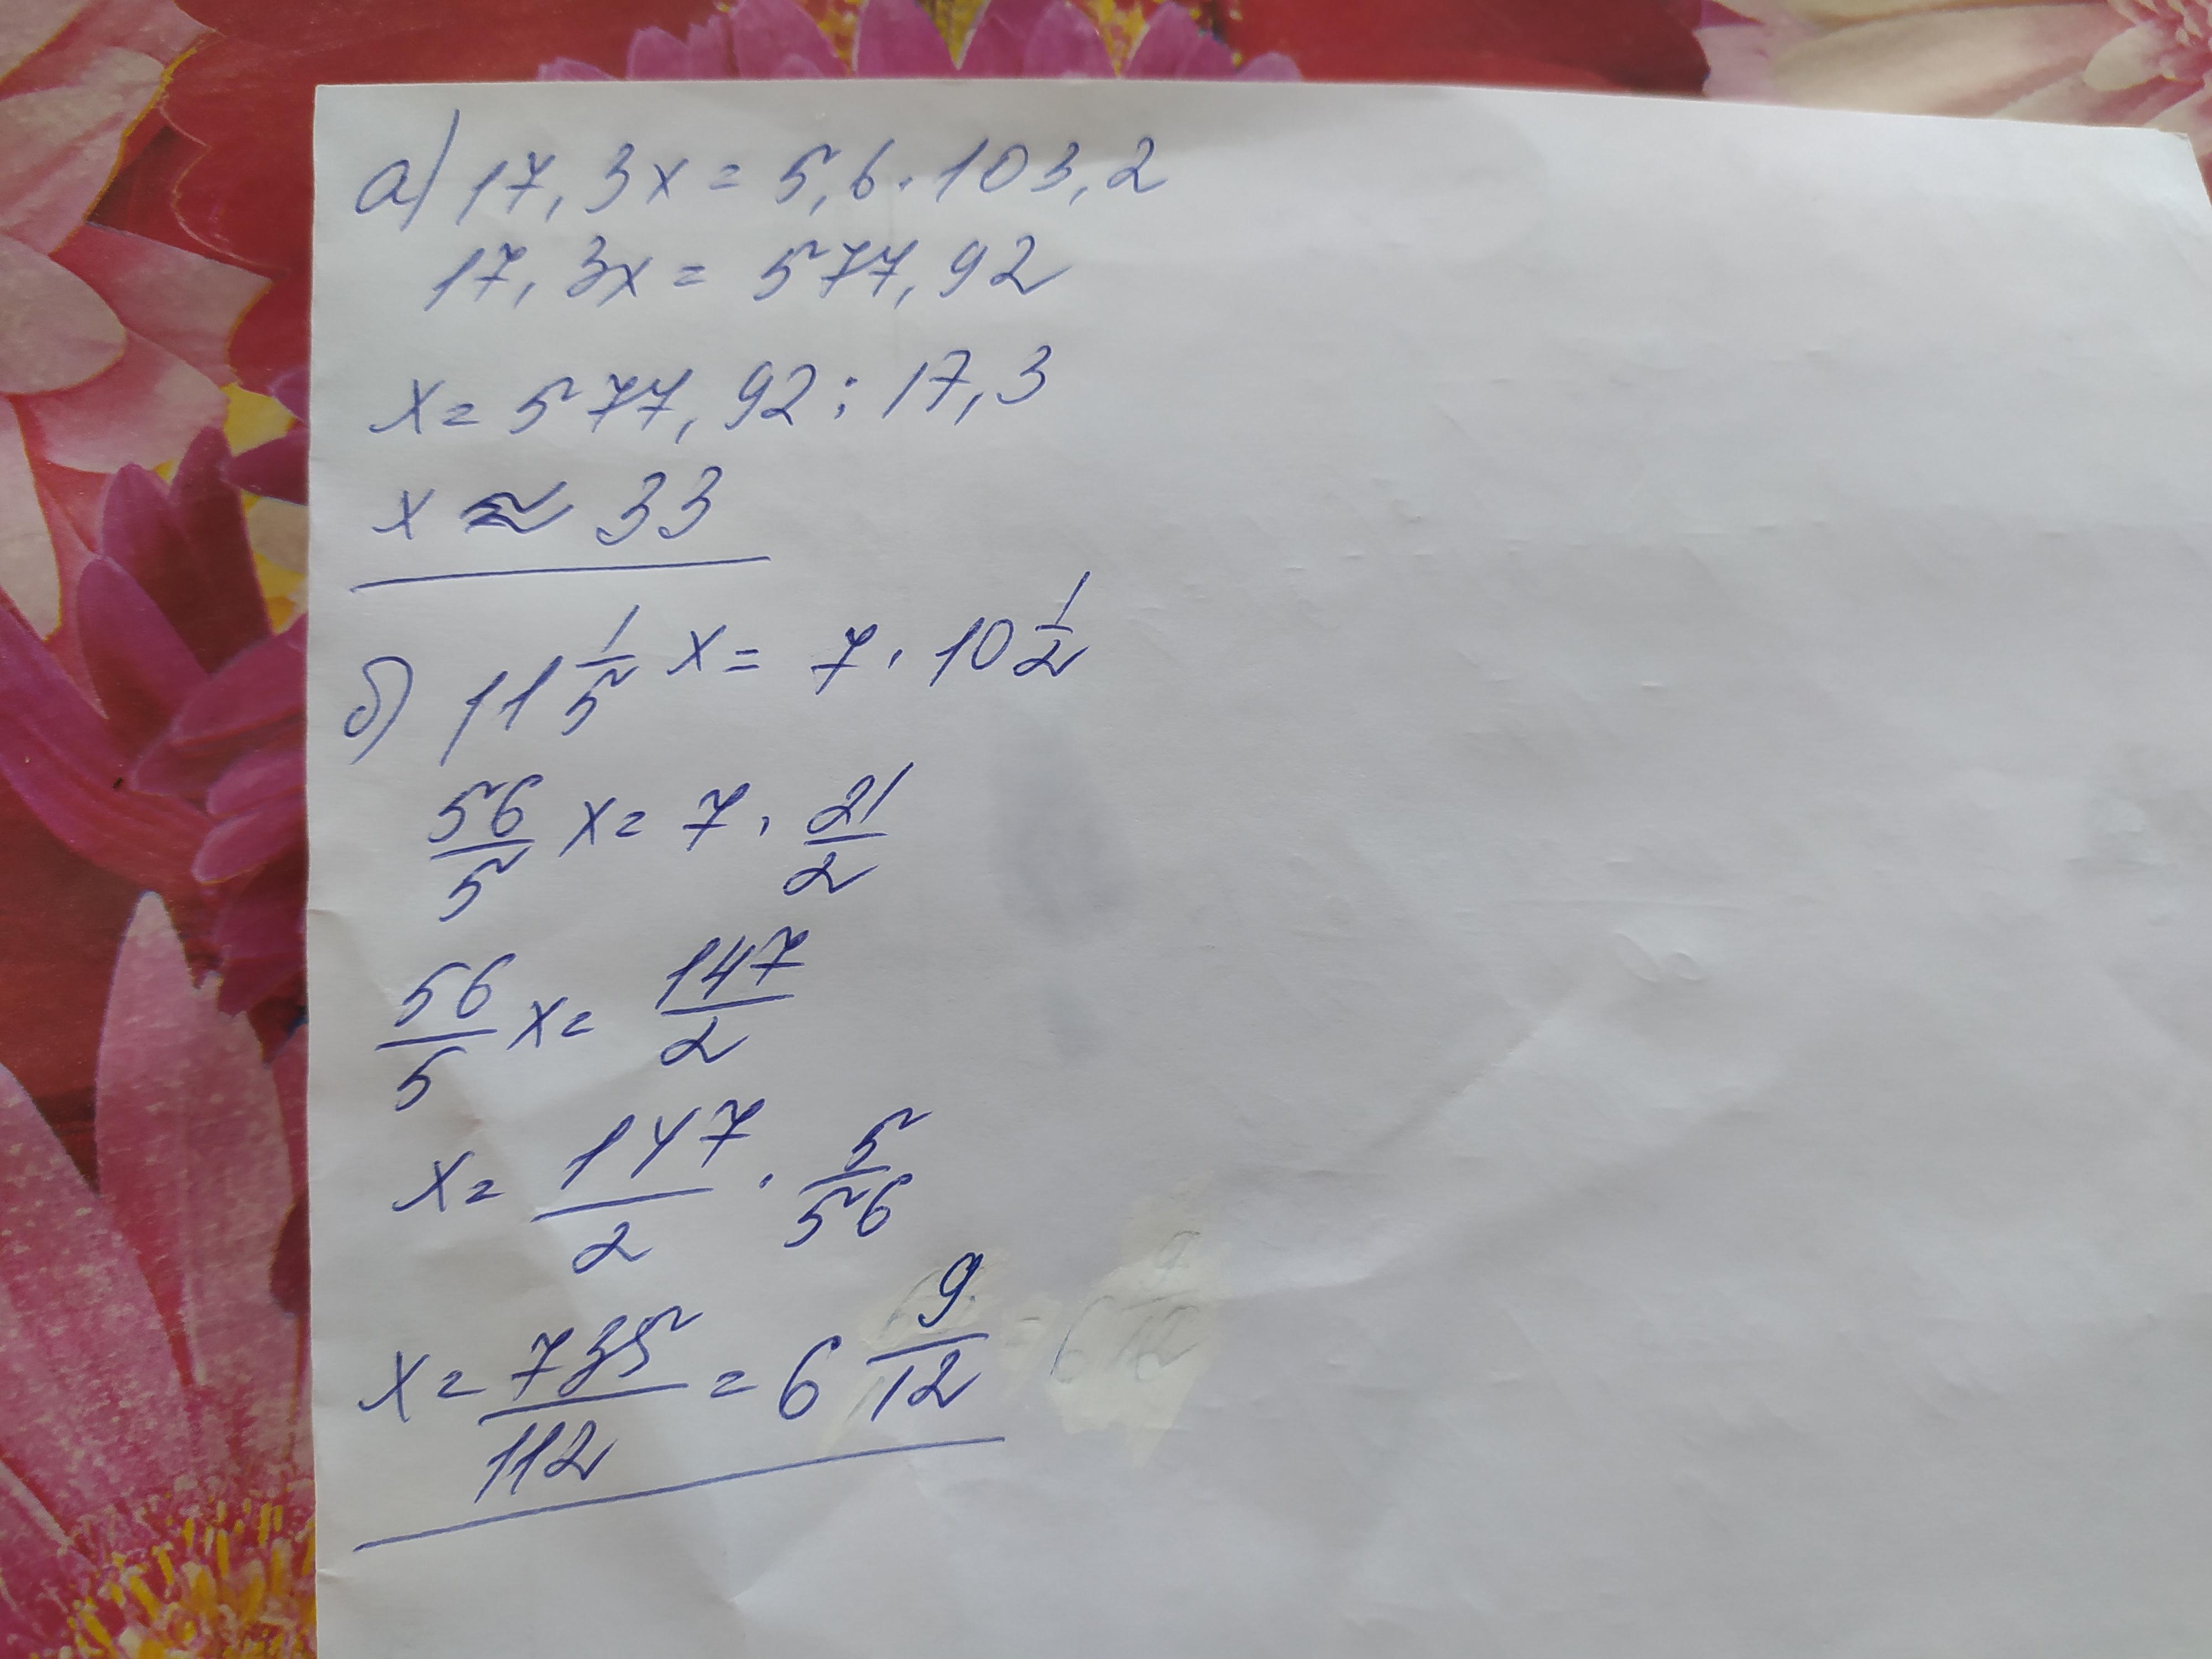 а) 17,3x = 5,6 · 103,2
17,3x = 577,92
x = 577,92 : 17,3
x ≈ 33
б) 11 1/5 x = 7 · 10 1/2
56/5 x = 7 · 21/2
56/5 x = 147/2
x = 147/2 · 5/56
x = 735/112 = 6 9/12